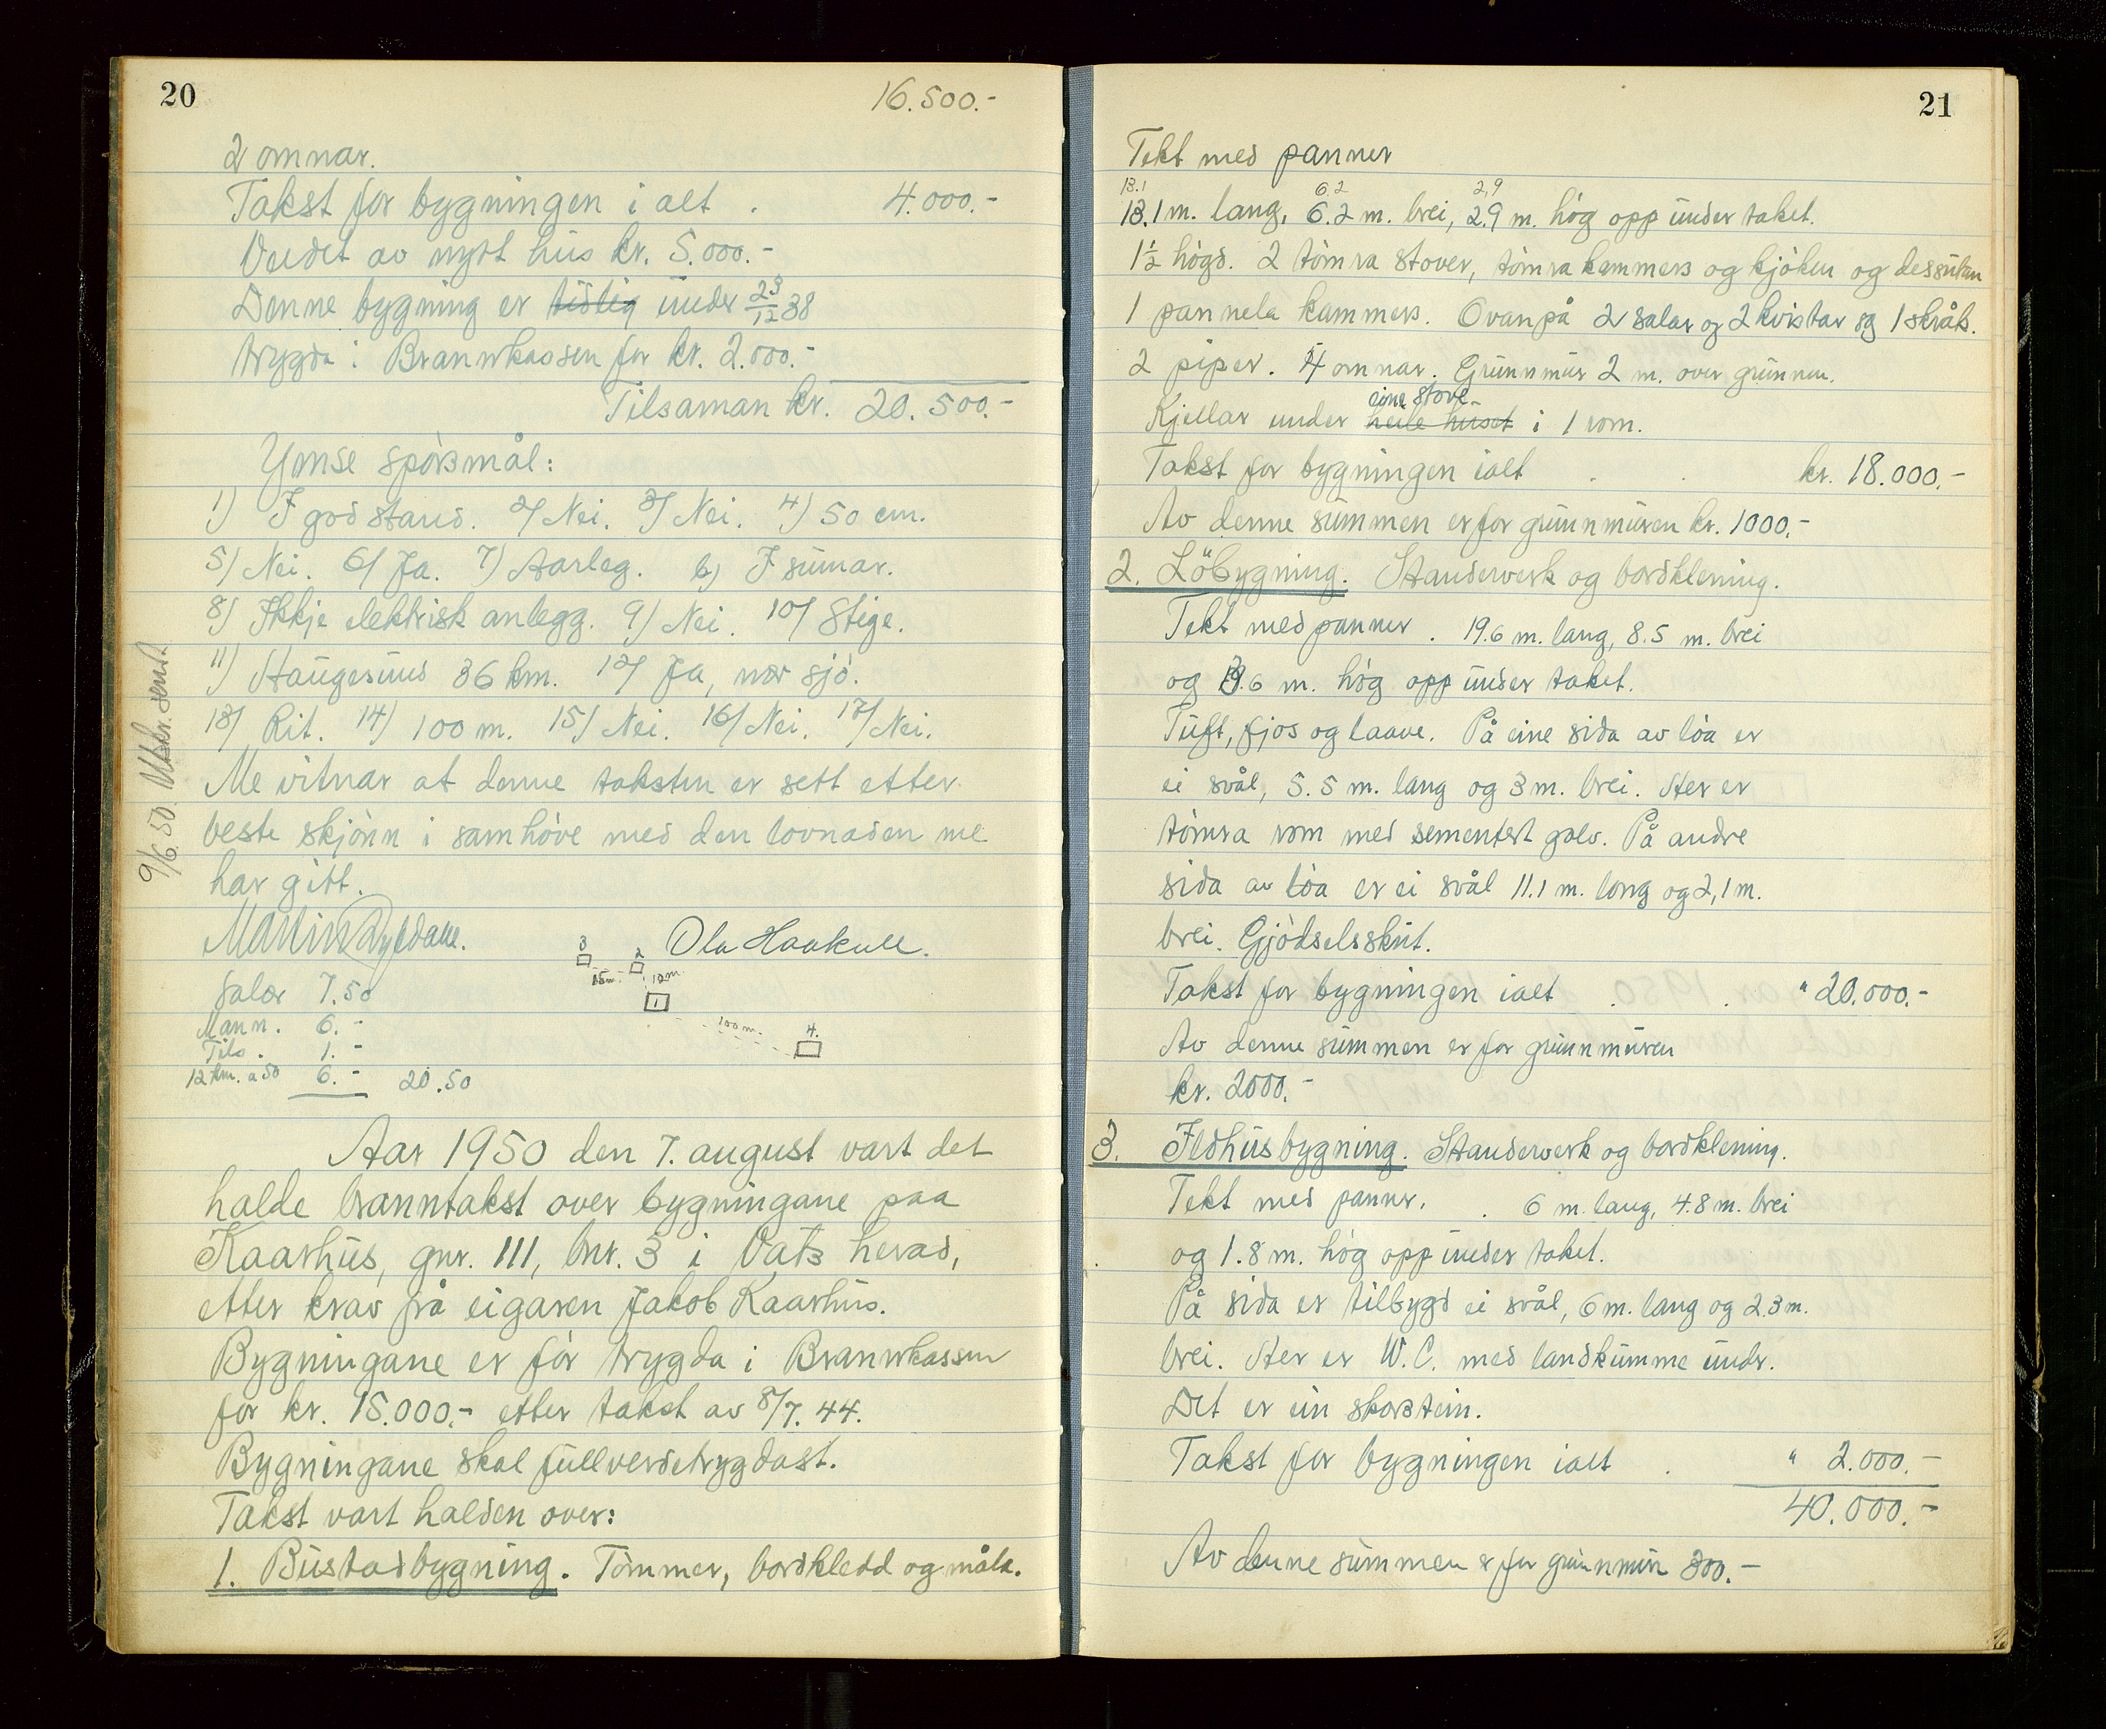 20
16.500.-
2 omnar.
Takst for bygningen i alt . 4.000.-
Verdet av nytt hus kr. 5.000.-
Denne bygning er tidlig under 23/12 38
trygda i Brannkassen for kr. 2.000.-
Tilsaman kr. 20.500.-
Ymse spörsmål:
1) I god stand. 2) Nei. 3) Nei. 4) 50 cm.
5) Nei. 6) Ja. 7) Aarleg. b) I sumar.
8) Ikkje elektrisk anlegg. 9) Nei. 10) Stige.
11) Haugesund 36 km. 12) Ja, nær sjö.
13) Rit. 14) 100 m. 15) Nei. 16) Nei. 17) Nei.
Me vitnar at denne taksten er sett etter
beste skjönn i samhöve med den lovnaden me
har gitt.
9/6.50. Utskr. sendt
Martin
Ola Haakull.
3
2
15m.
12m.
1
100 m.
4.
Salær 7.50
Mann. 6.-
Tils. 1.-
12 km. a 50 6.- 20.50
Aar 1950 den 7. august vart det
halde branntakst over bygningane paa
Kaarhus, gnr. 111, bnr. 3 i Vats herad,
etter krav frå eigaren Jakob Kaarhus.
Bygningane er för trygda i Brannkassen
for kr. 15.000.- etter takst av 8/7.44.
Bygningane skal fullverdetrygdast.
Takst vart halden over:
1. Bustadbygning. Tömmer, bordkledd og måla.
21
Tekt med panner
13.1 6.2 2,9
13.1 m. lang, 6.2 m. brei, 2.9 m. hög opp under taket.
1½ högd. 2 tömra stover, tömra kammers og kjöken og dessutan
1 pannela kammers. Ovanpå 2 salar og 2 kvistar og 1 skråk.
2 piper. 4 omnar. Grunnmur 2 m. over grunnen.
eine stove
Kjellar under heile huset i 1 rom.
Takst for bygningen ialt . . kr. 18.000.-
Av denne summen er for grunnmuren kr. 1000.-
2. Löbygning. Standerverk og bordklening.
Tekt med panner . 19.6 m. lang, 8.5 m. brei
og 3.6 m. hög opp under taket.
Tuft, fjos og laave. På eine sida av löa er
ei svål, 5.5 m. lang og 3 m. brei. Her er
tömra rom med sementert golv. På andre
sida av löa er ei svål 11.1 m. long og 2,1 m.
brei. Gjödselsskut.
Takst for bygningen ialt . . " 20.000.-
Av denne summen er for grunnmuren
kr. 2000.-
3. Ildhusbygning. Standerverk og bordklening.
Tekt med panner. . 6 m. lang, 4.8 m. brei
og 1.8 m. hög opp under taket.
På sida er tilbygd ei svål, 6 m. lang og 2.3 m.
brei. Her er W.C. med landkumme under.
Det er ein skorstein.
Takst for bygningen ialt . " 2.000.-
40.000.-
Av denne summen er for grunnmur 300.-